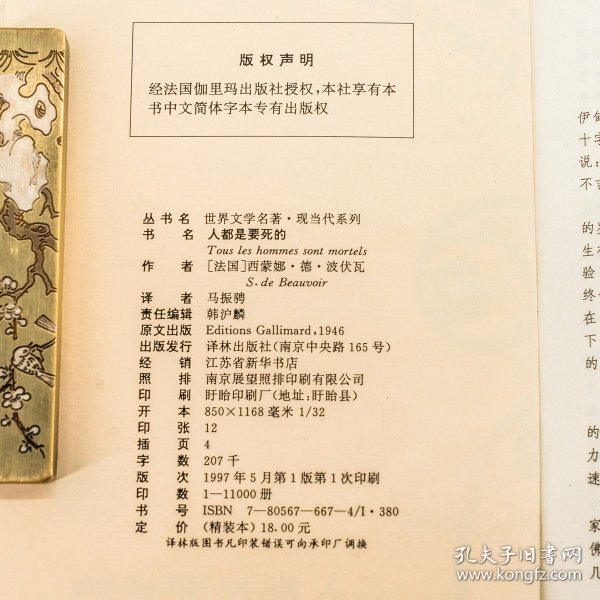 版权声明
经法国伽里玛出版社授权,本社享有本
书中文简体字本专有出版权
丛书名 世界文学名著·现当代系列
书名 人都是要死的
Tous les hommes sont mortels
作者 [法国]西蒙娜·德·波伏瓦
S. de Beauvoir
译者 马振骋
责任编辑 韩沪麟
原文出版 Editions Gallimard, 1946
出版发行 译林出版社(南京中央路 165 号)
经销 江苏省新华书店
照排 南京展望照排印刷有限公司
印刷 盱眙印刷厂(地址:盱眙县)
开本 850×1168 毫米 1/32
印张 12
插页 4
字数 207 千
版次 1997 年 5 月第 1 版第 1 次印刷
印数 1—11000 册
书号 ISBN 7—80567—667—4/I·380
定价 (精装本) 18.00 元
译林版图书凡印装错误可向承印厂调换
伊甸
十字
说:
不
的
生
验
终
在
下
的
的
力
速
家
佛
几
孔夫子旧书网
www.kongfz.com